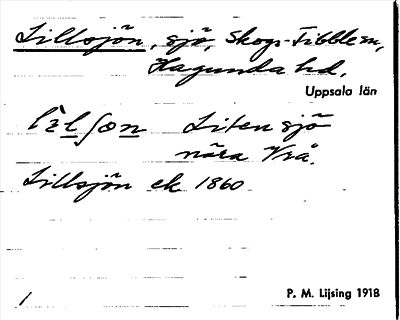 Lillsjön, sjö, Skogs-Tibble sn,
Hagunda hd,
Uppsala län
Liten sjö
nära Vrå.
Lillsjön ek 1860
P. M. Lijsing 1918
1